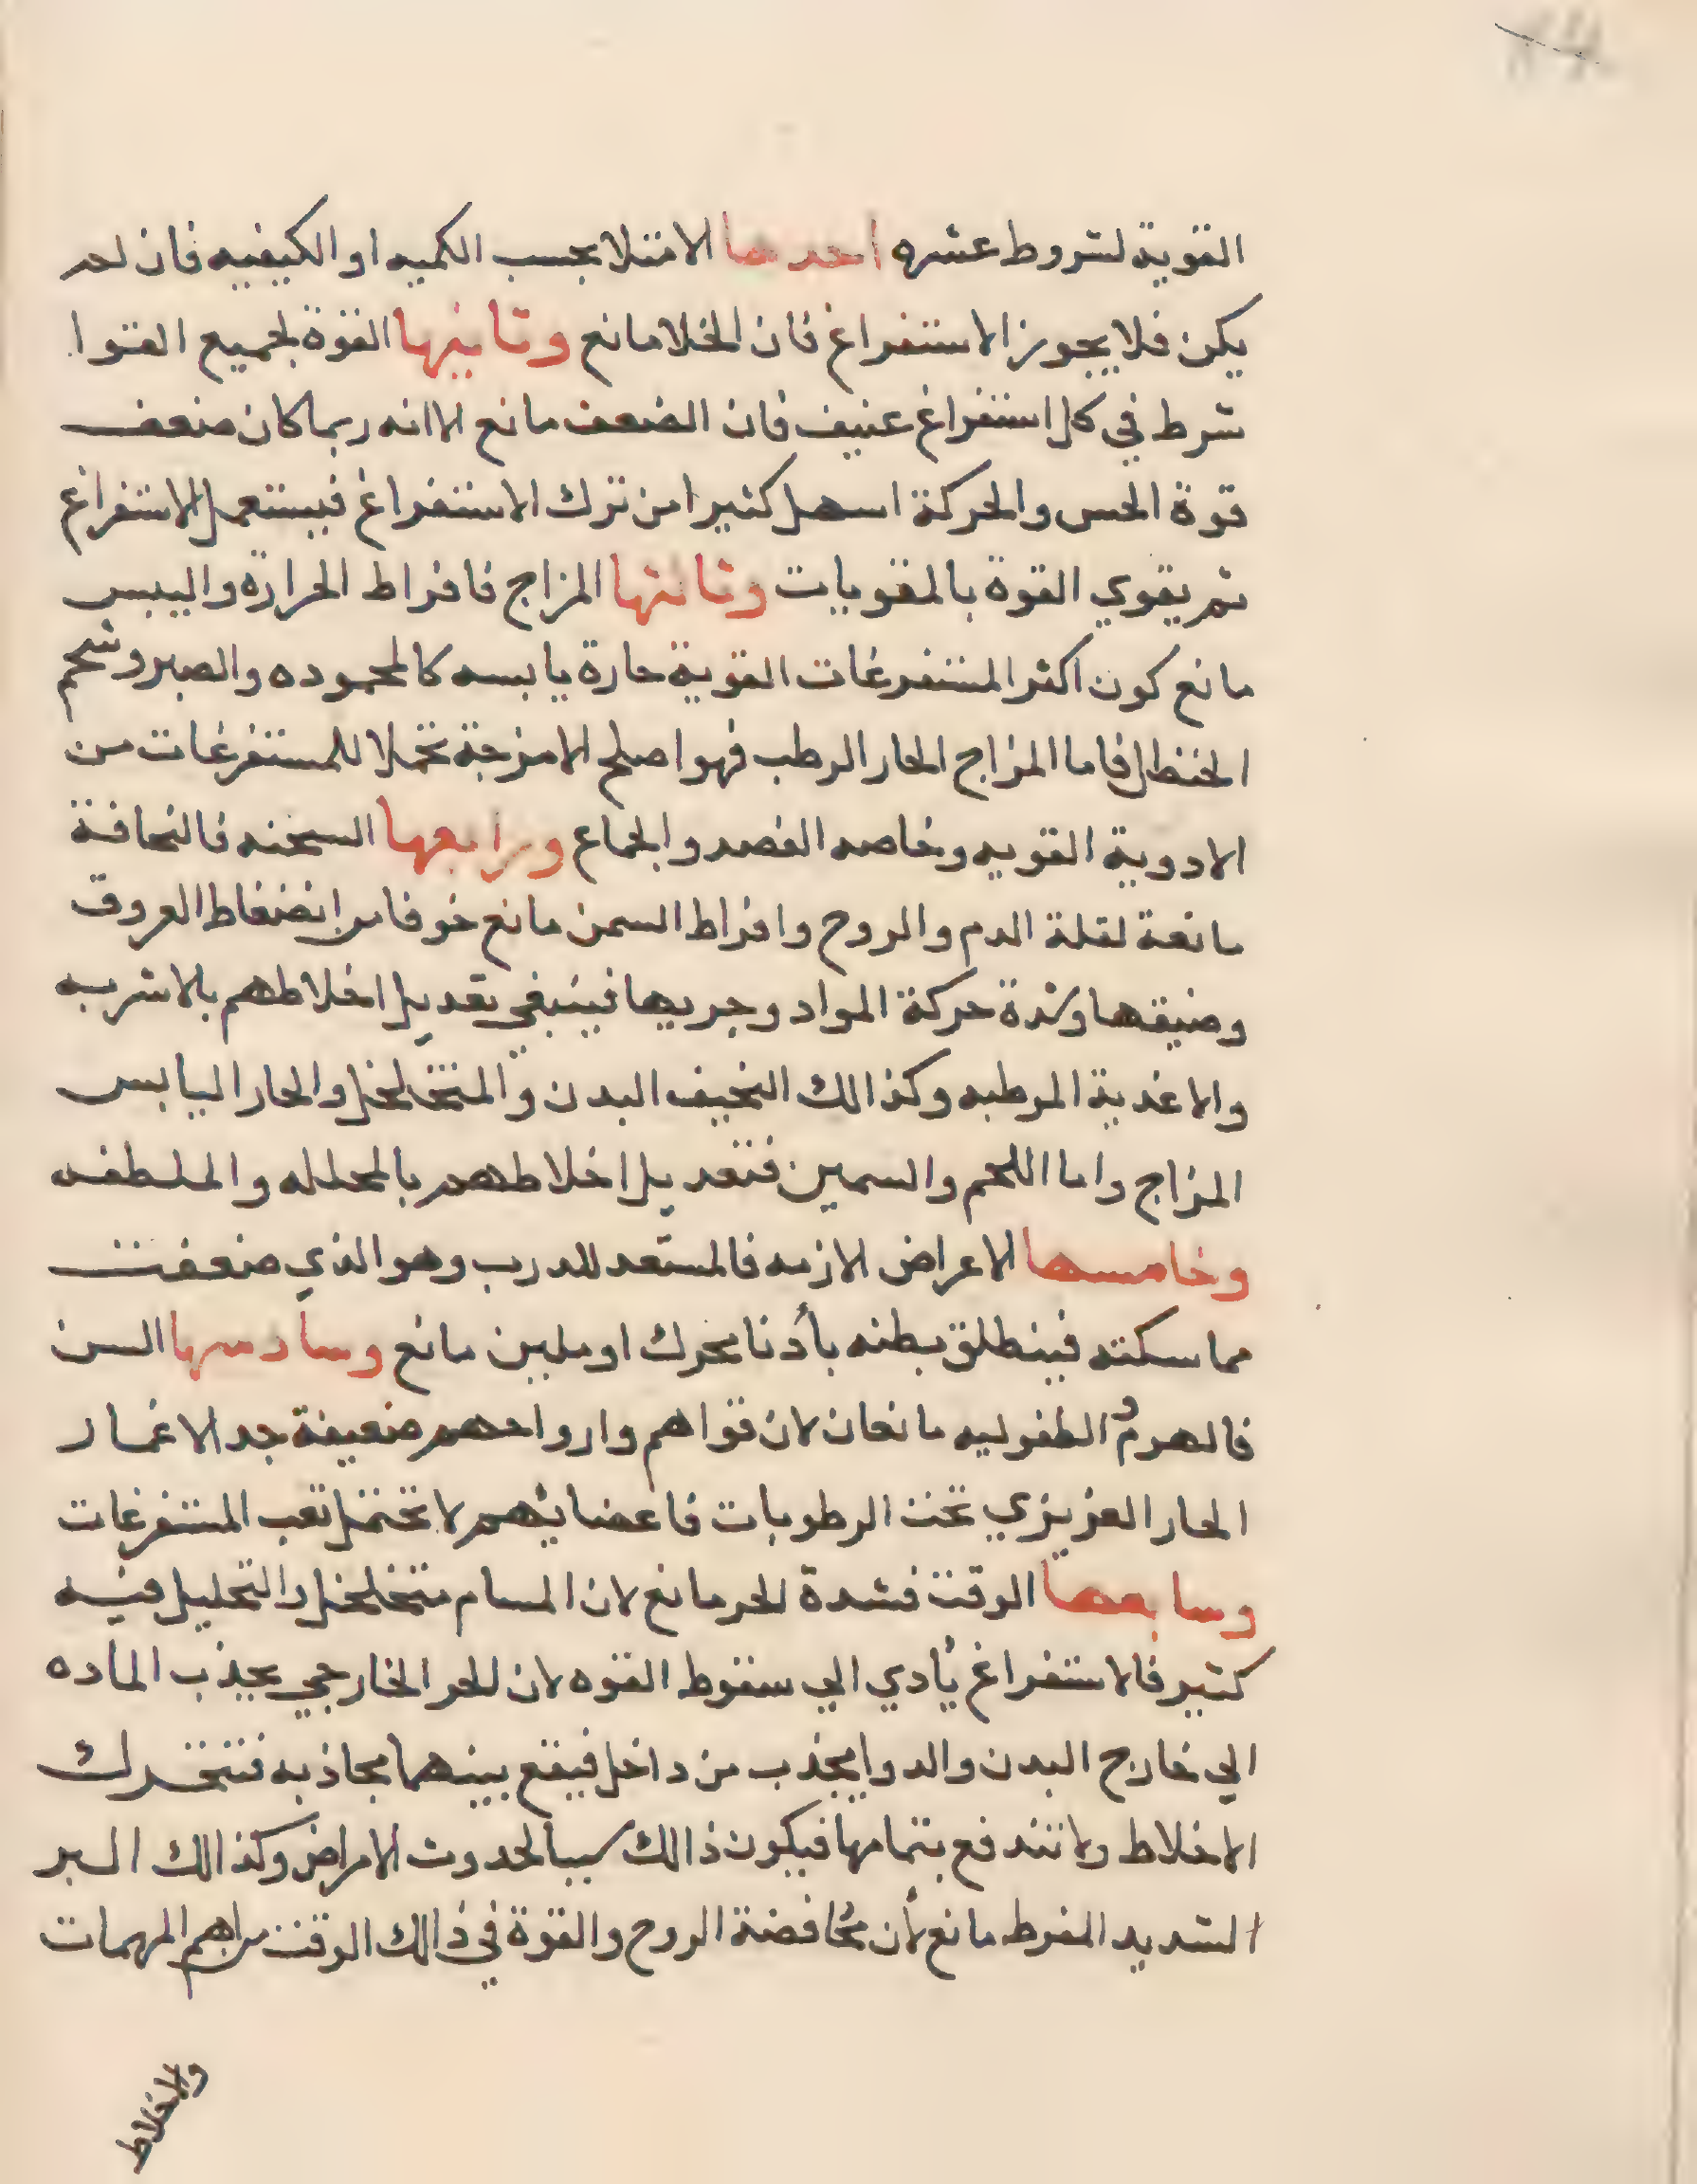 القوية لشروط عشره احدها الامتلا بحسب الكميه او الكيفيه فان لم
يكن فلا يجوز الاستفراغ فان الخلا مانع وثانيها القوة لجميع القوا
شرط في كل استفراغ عنيف فان الضعف مانع الا انه ربما كان ضعف
قوة الحس والحركة اسهل كثيرا من ترك الاستفراغ فيستعمل الاستفراغ
ثم يقوي القوة بالمقويات وثالثها المزاج فافراط الحرارة واليبس
مانع كون اكثر المستفرغات القوية حارة يابسه كالمحموده والصبر وشحم
الحنظل فاما المزاج الحار الرطب فهو اصلح الامزجة تحملا للمستفرغات من
الادوية القويه وخاصه الفصد والجماع ورابعها السحنه فالنحافة
مانعة لقلة الدم والروح وافراط السمن مانع خوفا من انضغاط العروق
وضيقها وشدة حركة المواد وجريها فينبغي تعديل اخلاطهم بالاشربه
والاغدية المرطبه وكذالك النحيف البدن والمتخلخل والحار اليابس
المزاج واما اللحم والسمين فتعديل اخلاطهم بالمحلله والملطفه
وخامسها الاعراض الازمه فالمستعد للدرب وهو الذي ضعفت
مماسكته فينطلق بطنه بأدنا محرك او ملين مانع وسادسها السن
فالهرم و الطفوليه مانعان لان قواهم وارواحهم ضعيفة جد الاغمار
الحار العزيزي تحت الرطوبات فاعضايهم لا تحتمل تعب المستفرغات
وسابعها الوقت فشدة الحر مانع لان المسام متخلخل والتحليل فيه
كثير فالاستفراغ يأدي الي سقوط القوه لان الحر الخارجي يجذب الماده
الي خارج البدن والدوا يجذب من داخل فيقع بينهما مجاذبه فتتحرك
الاخلاط ولا تندفع بتمامها فيكون ذالك سببا لحدوث الامراض وكذالك البر
الشديد المفرط مانع لأن محافضة الروح والقوة في ذالك الوقت من اهم المهمات
والاخلاط